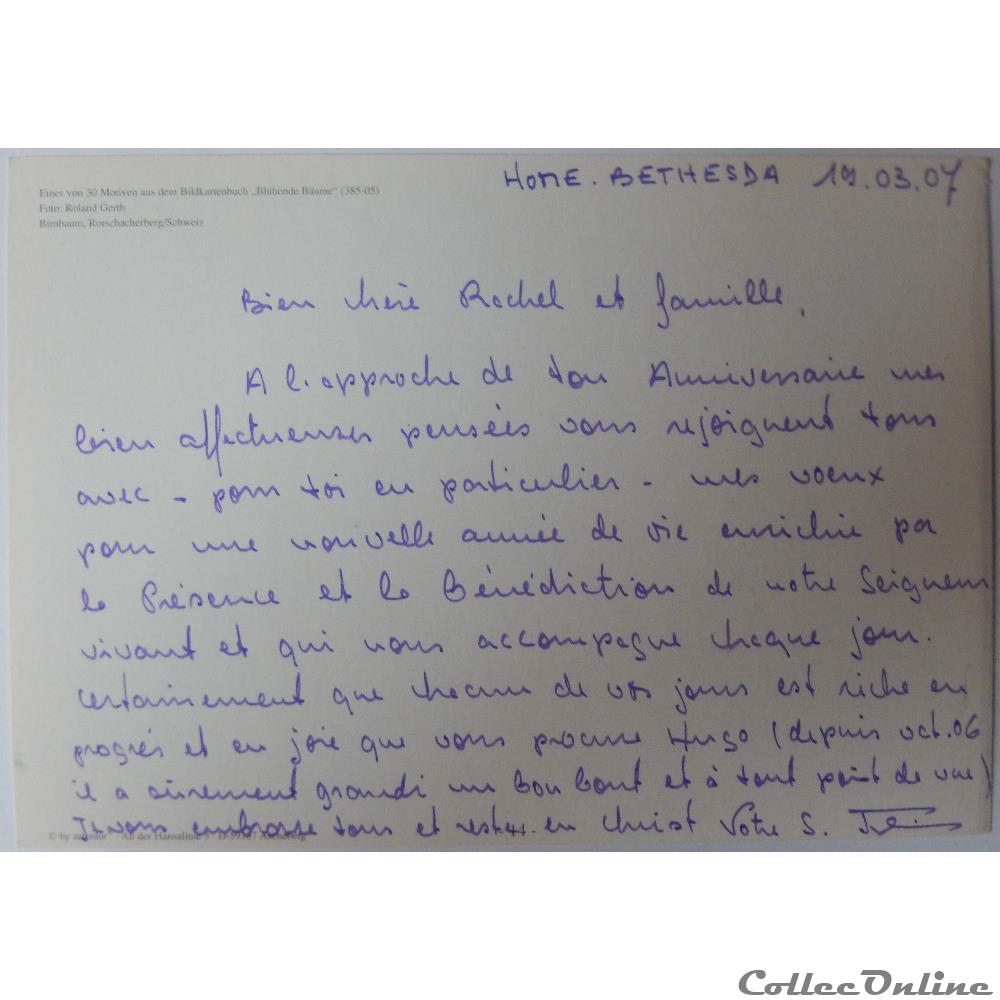 Eines von 30 Motiven aus dem Bildkartenbuch „Blühende Bäume“ (385-05)
Foto: Roland Gerth
Birnbaum, Rorschacherberg/Schweiz
HOME. BETHESDA 19.03.07
Bien chère Rachel et famille,
A l'approche de ton Anniversaire mes
bien affectueuses pensées vous rejoignent tous
avec - pour toi en particulier - mes voeux
pour une nouvelle année de vie enrichie par
la Présence et la Bénédiction de notre Seigneur
vivant et qui nous accompagne chaque jour.
Certainement que chacun de vos jours est riche en
progrès et en joie que vous procure Hugo (depuis oct. 06
il a sûrement grandi un bon bout et à tout point de vue)
Je vous embrasse tous et reste en Christ Votre S.
© by
CollecOnline